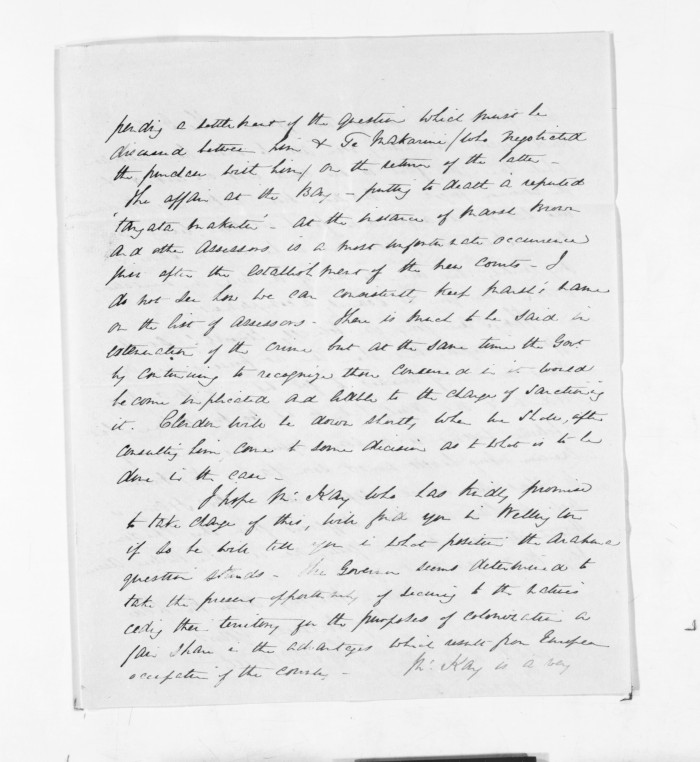 pending a settlement of the question which must be
discussed between him & Te Makarini (who negotiated
the purchase with him) on the return of the latter -
The affair at the Bay - putting to death a reputed
'tangata makutu' - at the instance of Marsh Brown
and other Assessors is a most unfortunate occurrence
just after the establishment of the new Courts - I
do not see how we can consistently keep Marsh's name
on the list of assessors - There is much to be said in
extenuation of the crime but at the same time the Govt.
by continuing to recognize those concerned in it would
become implicated and liable to the charge of sanctioning
it. Clendon will be down shortly when we shall, after
consulting him, come to some decision as to what is to be
done in the case -
I hope Mr. Kay who has kindly promised
to take charge of this, will find you in Wellington
if so he will tell you in what position the
question stands - The Governor seems determined to
take the present opportunity of securing to the natives
ceding their territory for the purposes of colonization a
fair share in the advantages which result from European
occupation of the country - Mr. Kay is a very